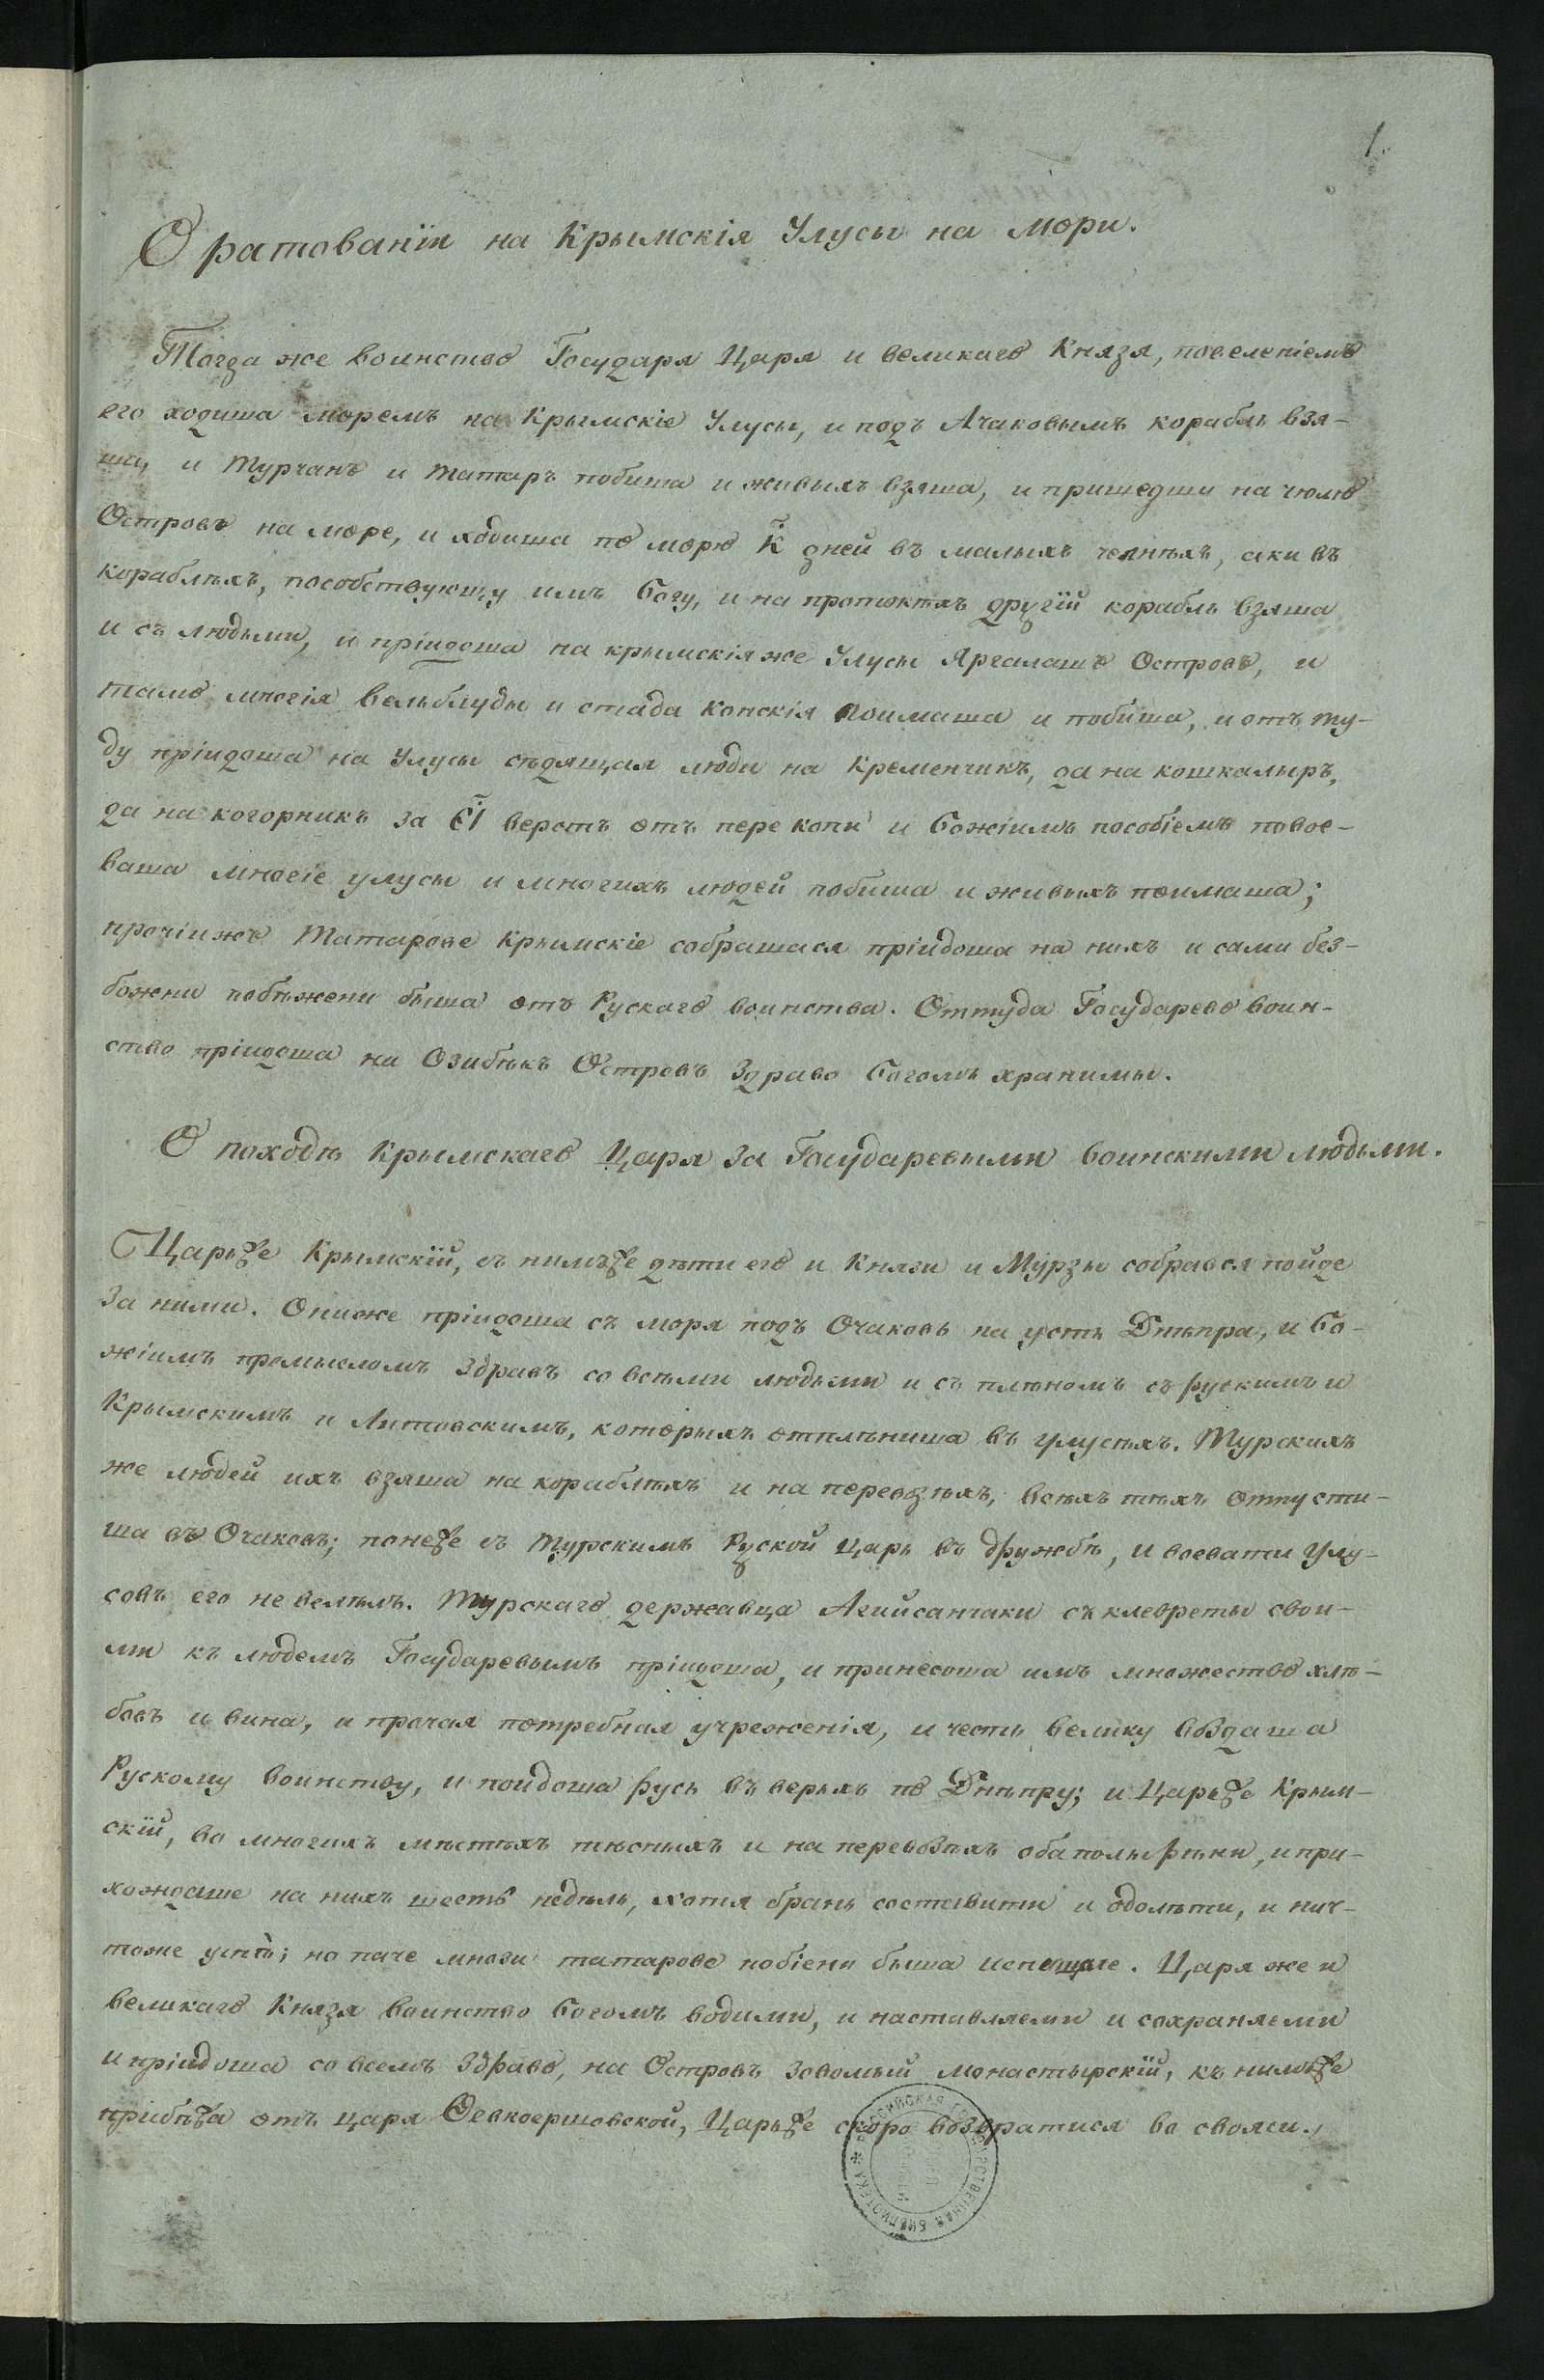 1.
О ратованїи на Крымскія Улусы на мори.
Тогда же воинство Государя Царя и великаго Князя, повеленіемъ
его ходиша моремъ на Крымскіе Улусы, и подъ Ачаковымъ корабль взя-
ша, и Турчанъ и татаръ побиша и живыхъ взяша, и пришедши на чюлю
Островъ на море, и ходиша по морю К҃ дней въ малыхъ челнѣхъ, аки въ
кораблѣхъ, пособствующу имъ богу, и на протокѣхъ другїй корабль взяша
и съ людьми, и пріидоша на крымскія же Улусы Яргалашъ Островъ, и
тамо многія вельблуды и стада конскія поимаша и побиша, и отъ ту-
ду пріидоша на Улусы сѣдящая люди на Кременчикъ, да на кошкалыръ,
да на когорникъ за є҃і верстъ отъ перекопи и божіимъ пособіемъ повое-
ваша многіе улусы и многихъ людей побиша и живыхъ поимаша;
прочіижъ татарове Крымскіе собрашася пріидоша на нихъ и сами без-
божни побѣжени быша отъ Рускаго воинства. Оттуда Государево воин-
ство пріидоша на Озибѣкъ Островъ здраво богомъ хранимы.
О походѣ Крымскаго Царя за Государевыми воинскими людьми.
Царьже Крымскїй, съ нимъже дѣти его и Князи и Мурзы собрався пойде
за ними. Ониже пріидоша съ моря подъ Очаковъ на усть Днѣпра, и бо-
жіимъ промысломъ здравъ со всѣми людьми и съ плѣномъ съ рускимъ и
Крымскимъ и Литовскимъ, которыхъ отплѣниша въ улусѣхъ. Турскихъ
же людей ихъ взяша на кораблѣхъ и на перевозѣхъ, всѣхъ тѣхъ отпусти-
ша въ Очаковъ; понеже съ турскимъ Руской Царь въ дружбѣ, и воевати улу-
совъ его не велѣлъ. Турскаго державца Агиисанчаки съ клевреты свои-
ми къ людемъ Государевымъ пріидоша, и принесоша имъ множество хлѣ-
бовъ и вина, и прочая потребная учреженія, и честь велику воздаша
Рускому воинству, и поидоша русь въ верьхъ по Днѣпру; и Царьже Крым-
скїй, во многихъ мѣстѣхъ тѣсныхъ и на перевозѣхъ обаполы рѣки, и при-
хождаше на нихъ шесть недѣль, хотя брань составити и одолѣти, и нич-
тоже успѣ; но паче мнози татарове побіени быша испищале. Царя же и
великаго Князя воинство богомъ водими, и наставляеми и сохраняеми
и пріидоша со всемъ здраво, на Островъ зовомый монастырскїй, къ нимъже
прибѣжа отъ царя Ѳевкоершовской, Царьже скоро возвратися во свояси.
РОССИЙСКАЯ ГОСУДАРСТВЕННАЯ БИБЛИОТЕКА